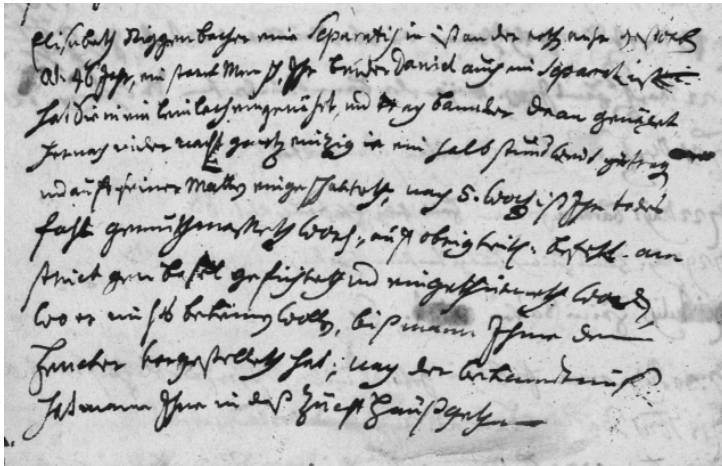 Elisabeth Riggenbacher eine Separatistin ist an der roth ruhr gestorb
At. 46 Jahr, ein starck Mensch, Ihr bruder Daniel auch ein Separatist
hat Sie in ein leinlach eingenührt, und
hernach in der nacht gantz eintzig ein halb stund weit getrag
und auf seiner Matten eingescharret, nach 5. Woch ist Ihr todes
fahl gemuthmasset word, auf obrigkeit. befehl. am
strick gen basel geführet und eingethürnet word,
wo er nichts bekennen wollen, biß mann Ihme den
Hencker vorgestellet hat, nach der bekandtnuß
hat mann Ihne in daß Zucht Hauß gethan